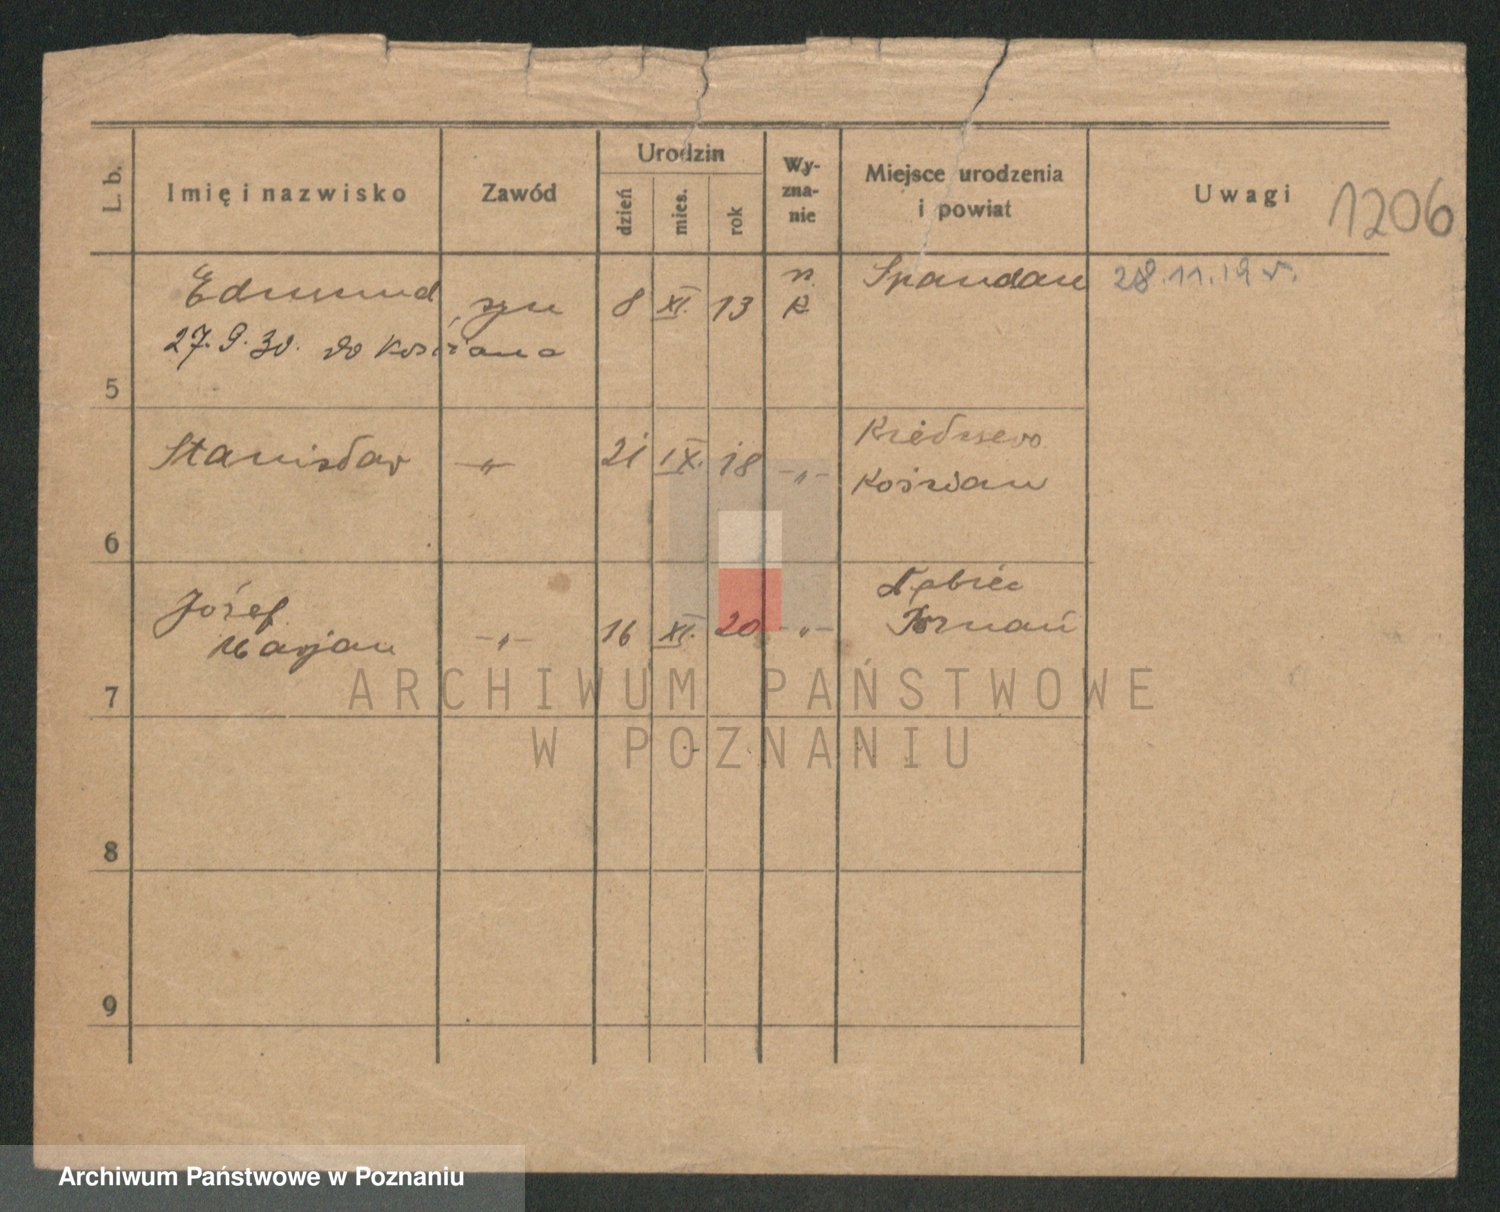 L. b.
Imię i nazwisko
Zawód
Urodzin
dzień
mies.
rok
Wy-
zna-
nie
Miejsce urodzenia
i powiat
Uwagi
1206
5
Edmund
syn
8
XI.
13
r.
k.
Spandau
28.11.19 r.
27.9.30. do Kościana
6
Stanisław
-„-
21
IX.
18
-„-
Kościan
7
Józef
Marjan
-„-
16
XI.
20
-„-
Dębiec
Poznań
8
9
ARCHIWUM PAŃSTWOWE
W POZNANIU
Archiwum Państwowe w Poznaniu